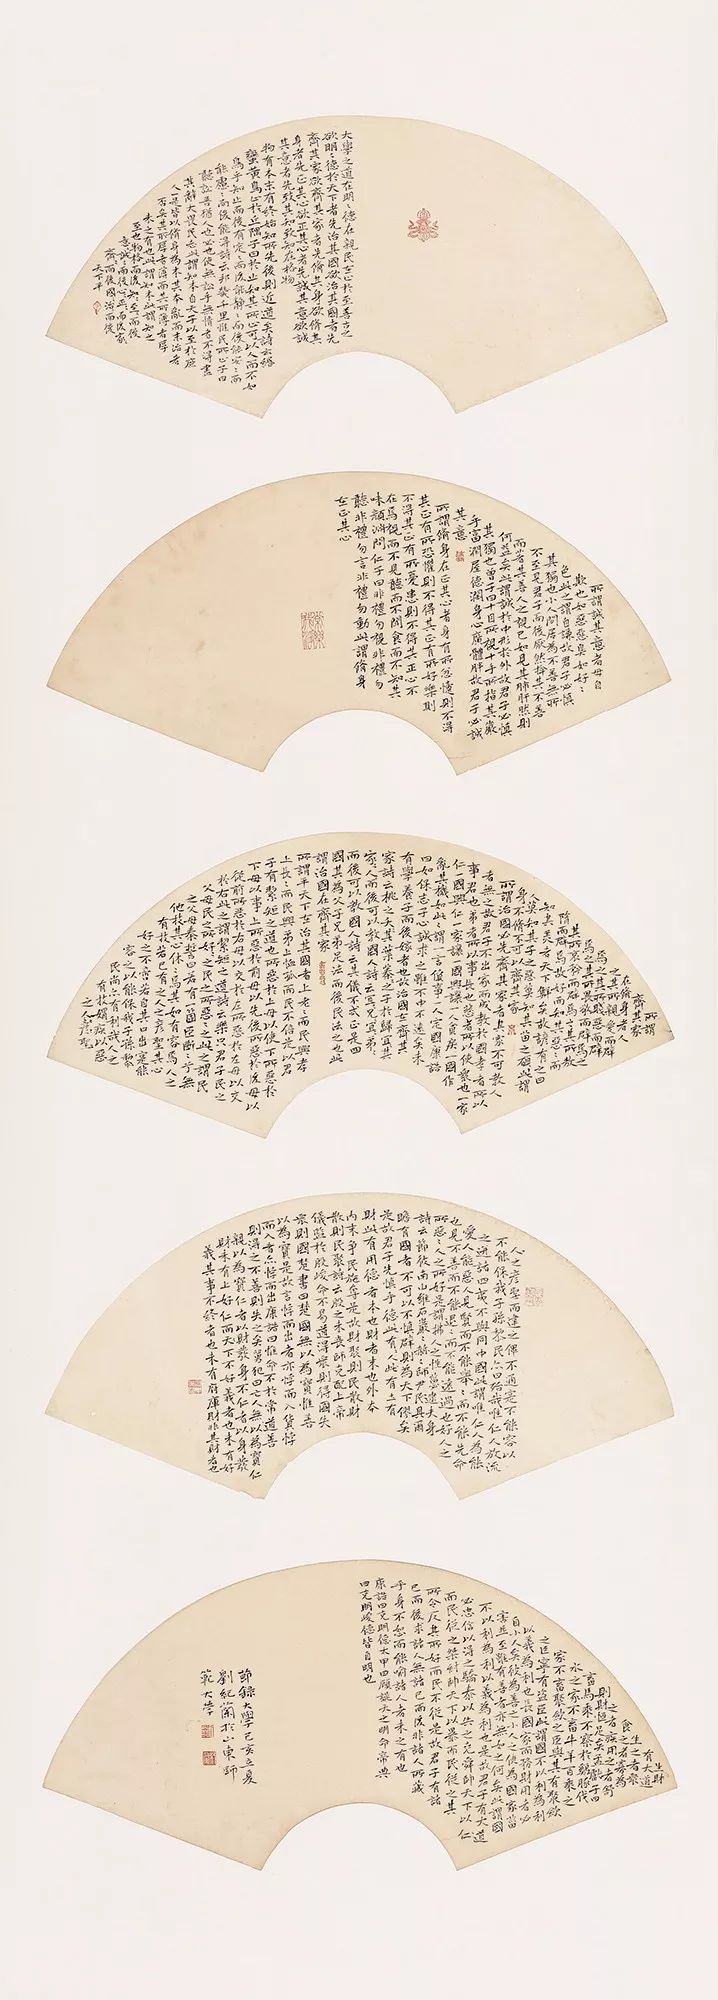 大學之道在明〻德在親民在止於至善古之
欲明〻德於天下者先治其國欲治其國者先
齊其家欲齊其家者先脩其身欲脩其
身者先正其心欲正其心者先誠其意欲誠
其意者先致其知致知在格物
物有本末有終始知所先後則近道矣詩云緡
蠻黃鳥止於丘隅子曰於止知其所止可以人而不如
鳥乎知止而後有定〻而後能靜〻而後能安〻而
後能慮〻而後能得詩云邦畿千里惟民所止子曰
聽訟吾猶人也必也使無訟乎無情者不得盡
其辭大畏民志此謂知本自天子以至於庶
人一是皆以脩身為本其本亂而末治者
否矣其所厚者薄而其所薄者厚
未之有也此謂知本此謂知之
至也物格而後知至〻而後
意誠〻而後心正〻而後家
齊〻而後國治而後
天下平
所謂誠其意者毋自
欺也如惡惡臭如好〻
色此之謂自謙故君子必慎
其獨也小人閒居為不善無所
不至見君子而後厭然揜其不善
而著其善人之視己如見其肺肝然則
何益矣此謂誠於中形於外故君子必慎
其獨也曾子曰十目所視十手所指其嚴
乎富潤屋德潤身心廣體胖故君子必誠
其意
所謂脩身在正其心者身有所忿懥則不得
其正有所恐懼則不得其正有所好樂則
不得其正有所憂患則不得其正心不
在焉視而不見聽而不聞食而不知其
味顏淵問仁子曰非禮勿視非禮勿
聽非禮勿言非禮勿動此謂脩身
在正其心
所謂
齊其家
在脩其身者人
之其所親愛而辟
焉之其所賤惡而辟
焉之其所畏敬而辟焉之
其所哀矜而辟焉之其所敖
惰而辟焉故好而知其惡惡而
知其美者天下鮮矣故諺有之曰
人莫知其子之惡莫知其苗之碩此謂
身不脩不可以齊其家
所謂治國必先齊其家者其家不可教而能教人
者無之故君子不出家而成教於國孝者所以
事君也弟者所以事長也慈者所以使眾也一家
仁一國興仁一家讓一國興讓一人貪戾一國作
亂其機如此〻謂一言僨事一人定國康誥
曰如保赤子心誠求之雖不中不遠矣未
有學養子而後嫁者也故治國在齊其
家詩云桃之夭〻其葉蓁〻之子於歸宜其
家人〻而後可以教國人詩云宜兄宜弟〻
而後可以教國人詩云其儀不忒正是四
國其為父子兄弟足法而後民法之也此
謂治國在齊其家
所謂平天下在治其國者上老〻而民興孝
上長〻而民興弟上恤孤而民不倍是以君
子有絜矩之道也所惡於上毋以使下所惡於
下毋以事上所惡於前毋以先後所惡於後毋以
從前所惡於右毋以交於左所惡於左毋以交
於右此之謂絜矩之道詩云樂只君子民之
父母民之所好〻之民之所惡〻之此之謂民
之父母秦誓曰若有一箇臣斷〻兮無
他技其心休〻焉其如有容焉人之
有技若己有之人之彥聖其心
好之不啻若自其口出寔能
容之以能保我子孫黎
民尚亦有利哉人之
有技媢疾以惡
之人之彥聖
人之彥聖而違之俾不通寔不能容以
不能保我子孫黎民亦曰殆哉唯仁人放流
之迸諸四夷不與同中國此謂唯仁人為能
愛人能惡人見賢而不能舉〻而不能先命
也見不善而不能退〻而不能遠過也好人之
所惡〻人之所好是謂拂人之性菑必逮夫身
詩云節彼南山維石巖〻赫〻師尹民具爾
瞻有國者不可以不慎辟則為天下僇矣
是故君子先慎乎德有人此有土有
財此有用德者本也財者末也外本
內末爭民施奪是故財聚則民散財
散則民聚詩云殷之未喪師克配上帝
儀監於殷峻命不易道得眾則得國失
眾則失國楚書曰楚國無以為寶惟善
以為寶是故言悖而出者亦悖而入貨悖
而入者亦悖而出康誥曰惟命不於常道善
則得之不善則失之矣舅犯曰亡人無以為寶仁
親以為寶仁者以財發身不仁者以身發
財未有上好仁而下不好義者也未有好
義其事不終者也未有府庫財非其財者也
生財
有大道
生之者眾
食之者寡為
之者疾用之者舒
則財恆足矣孟獻子曰
畜馬乘不察於雞豚伐
冰之家不畜牛羊百乘之
家不畜聚斂之臣與其有聚斂
之臣寧有盜臣此謂國不以利為利
以義為利也長國家而務財用者必
自小人矣彼為善之小人之使為國家菑
害並至雖有善者亦無如之何矣此謂國
不以利為利以義為利也是故君子有大道
必忠信以得之驕泰以失之堯舜帥天下以仁
而民從之桀紂帥天下以暴而民從之其
所令反其所好而民不從是故君子有諸
己而後求諸人無諸己而後非諸人所藏
乎身不恕而能喻諸人者未之有也
康誥曰克明德太甲曰顧諟天之明命帝典
曰克明峻德皆自明也
節錄大學己亥立夏
劉紀蘭於山東師
範大學